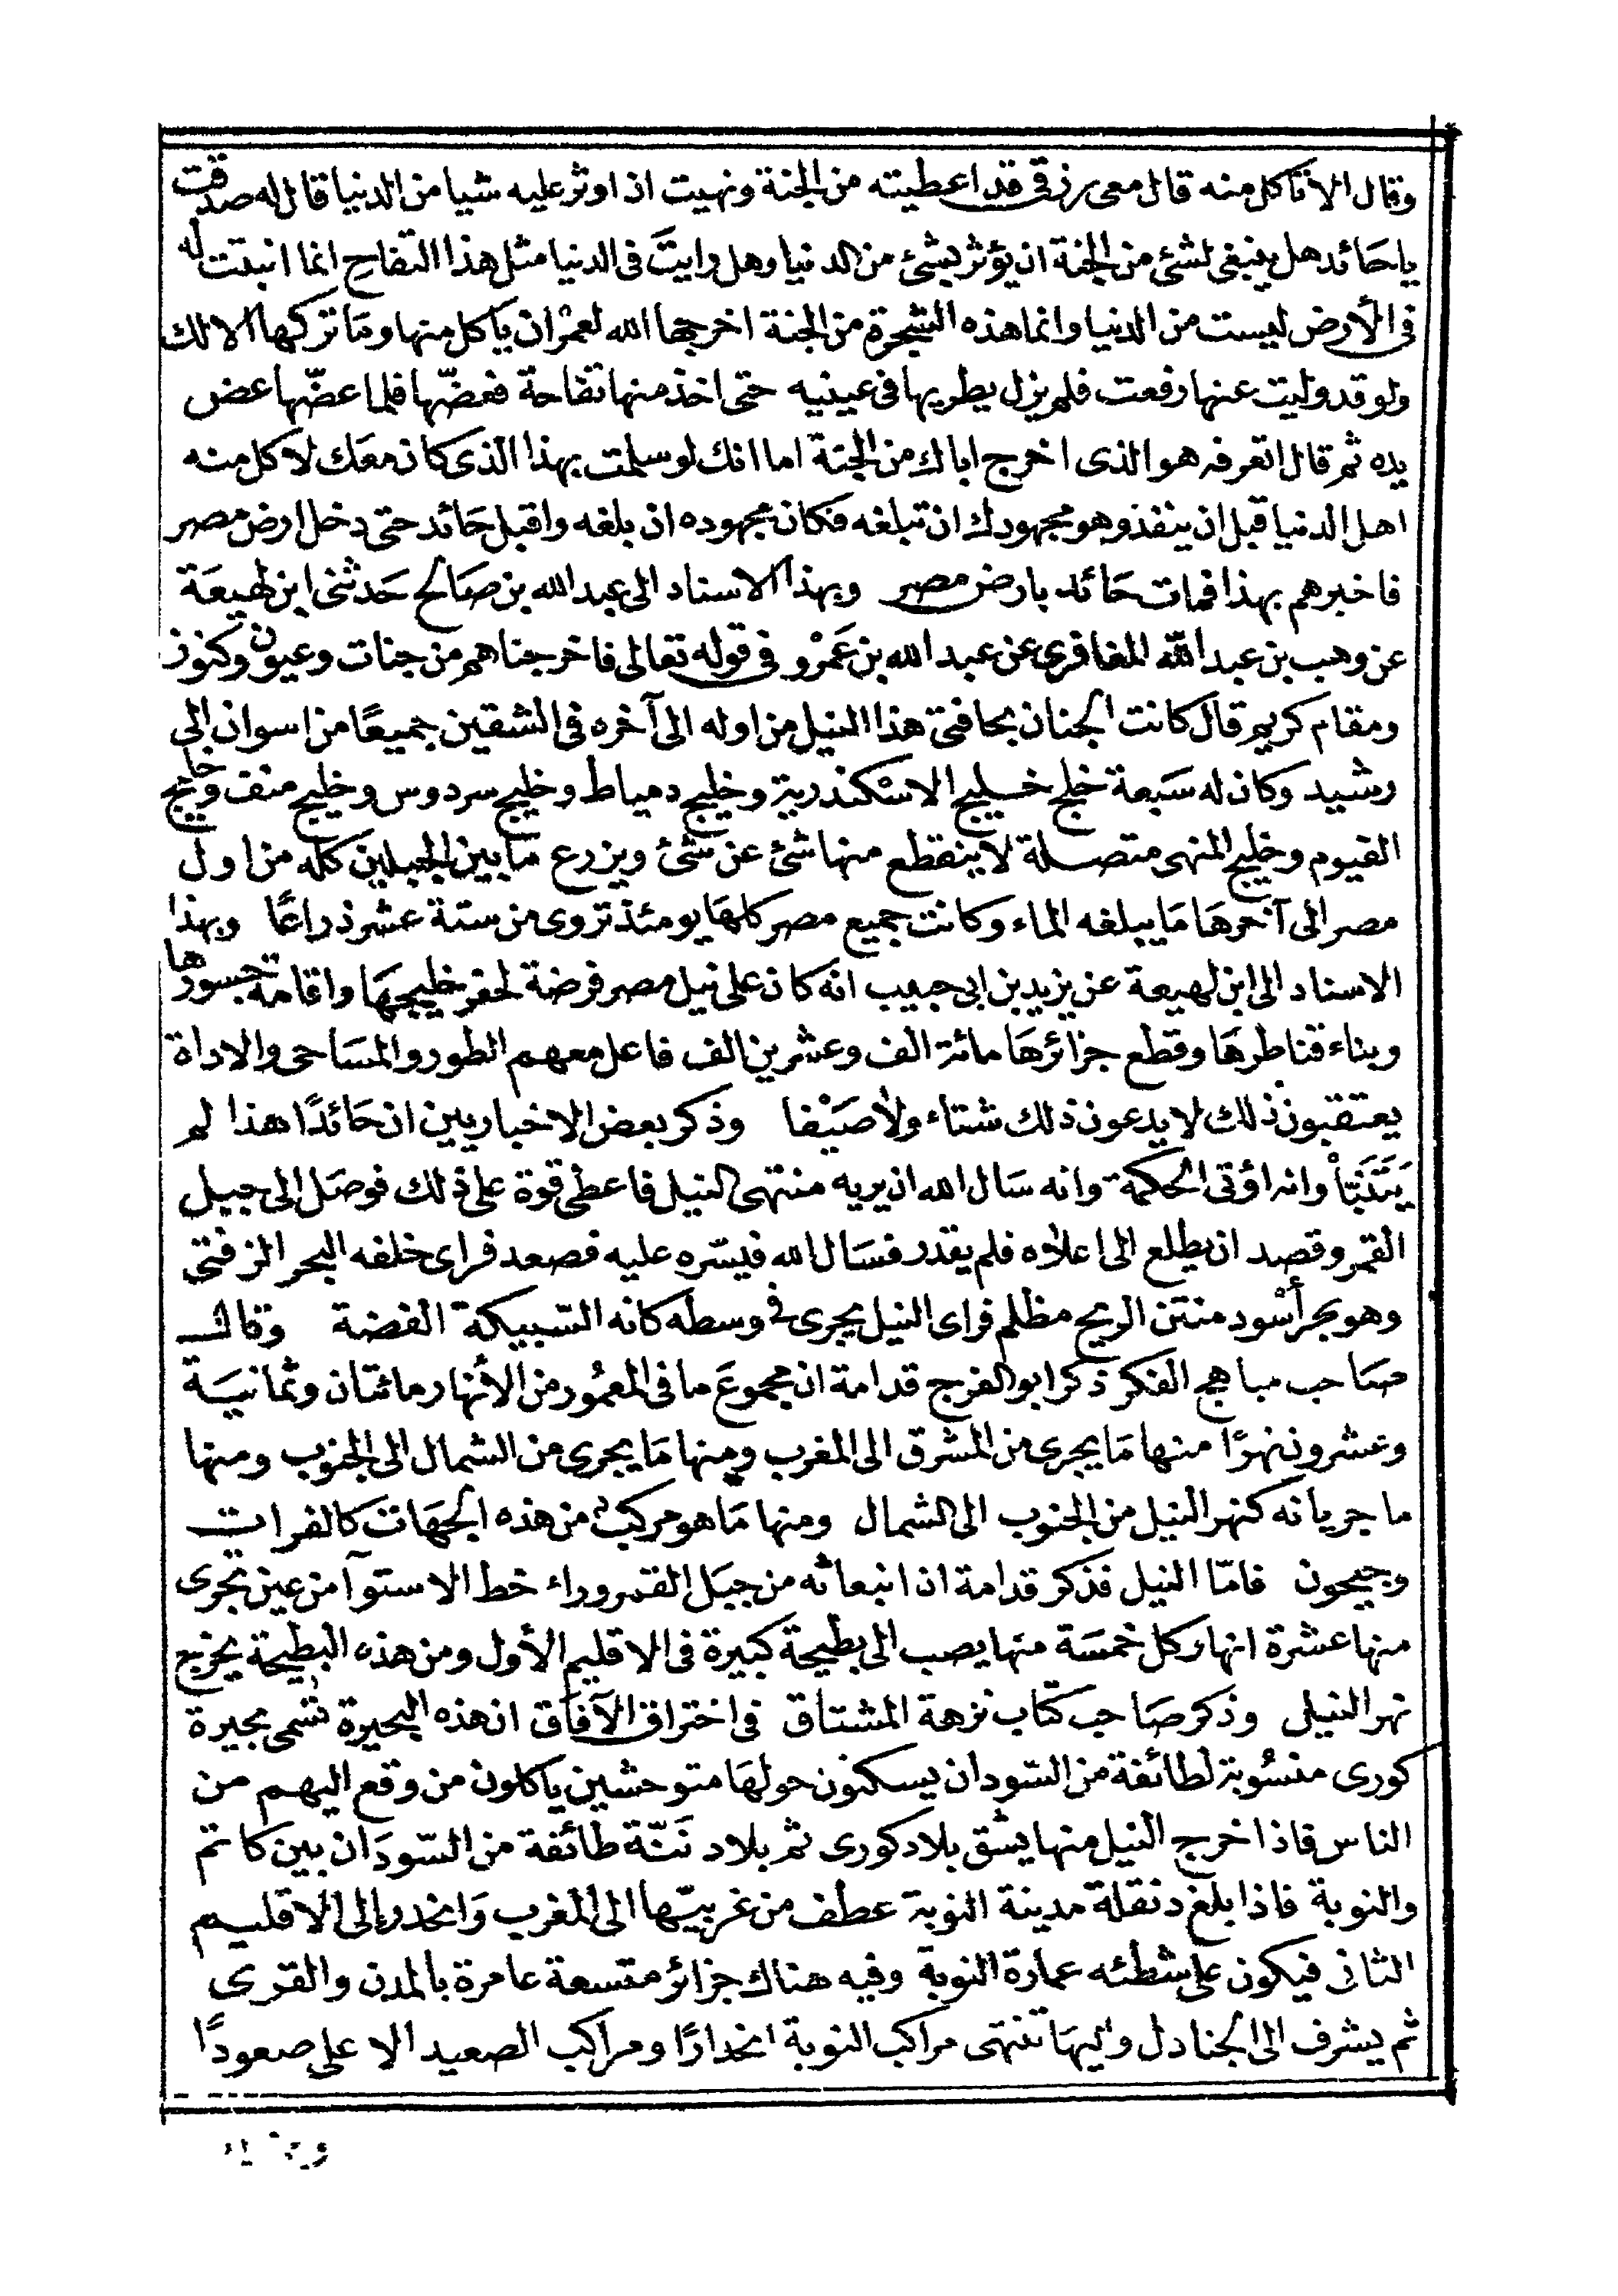 وقال الا تاكل منه قال معى رزقى قد اعطيته من الجنة ونهيت ان اوثر عليه شيا من الدنيا قال له صدقت
يا حَائد هل ينبغى لشئ من الجنة ان يؤثر بشئ من الدنيا وهل رايتَ فى الدنيا مثل هذا التفاح انما انبتت له
فى الأرض ليست من الدنيا وانما هذه الشجرة من الجنة اخرجها الله لعمْران ياكل منها ومَا تركها الا لك
ولو قد وليت عنها رفعت فلم يزل يطريها فى عينيه حتى اخذ منها تفاحة فعضّها فلما عضّها عض
يده ثم قال اتعرفه هو الذى اخرج اباك من الجنة اما انك لو سلمت بهذا الذى كان معَك لاكل منه
اهل الدنيا قبل ان ينفذ وهو مجهودك ان تبلغه فكان مجهوده ان بلغه واقبل حَائد حتى دخل ارض مصر
فاخبرهم بهذا فمات حَائد بارض مصر وبهذا الاسناد الى عبد الله بن صَالح حَدثنى ابن لهيعَة
عن وهب بن عبد اللّه المغافرى عن عبد الله بن عَمْرو فى قوله تعالى فاخرجناهم من جنات وعيون وكنوز
ومقام كريم قال كانت الجنان بحافتى هذا النيل من اوله الى آخره فى الشقين جميعًا من اسوان الى
رشيد وكان له سَبعة خلج خليج الاسْكندرية وخليج دمياط وخليج سردوس وخليج منف وخليج
الفيوم وخليج المنهى متصلة لا ينقطع منها شئ عن شئ ويزرع مَا بين الجبلين كله من اول
مصر الى آخرهَا مَا يبلغه الماء وكانت جميع مصر كلهَا يومئذ تروى من ستة عشر ذراعًا وبهذا
الاسناد الى ابن لهيعة عن يزيد بن ابى حبيب انه كان على نيل مصر فرضة لحفر خليجهَا واقامة جسورها
وبناء قناطرهَا وقطع جزائرهَا مائة الف وعشرين الف فاعل معهم الطور والمسَاحى والاداة
يعتقبون ذلك لا يدعون ذلك شتاء ولا صَيْفا وذكر بعض الاخباريين ان حَائدًا هذا لم
يَتَنَبّأْ وانه اؤتى الحكمة وانه سَال الله ان يريه منتهى النيل فاعطى قوة على ذلك فوصَل الى جبل
القمر وقصد ان يطلع الى اعلاه فلم يقدر فسَال الله فيسّره عليه فصعد فراى خلفه البحر الزفتى
وهو بحر أسْود منتن الريح مظلم فراى النيل يجرى فى وسطه كانه السّبيكة الفضة وقال
صَاحب مباهج الفكر ذكر ابو الفرج قدامة ان مجموعَ ما فى المعمُور من الأنهار مائتان وثمانيَة
وعشرون نهرًا منها مَا يجرى من المشرق الى المغرب ومنها مَا يجرى من الشمال الى الجنوب ومنها
ما جريانه كنهر النيل من الجنوب الى الشمال ومنها مَا هو مركب من هذه الجهَات كالفرات
وجيحون فامّا النيل فذكر قدامة ان انبعاثه من جبَل القمر وراء خط الاستوآ من عين تجرى
منها عشرة انهار كل خمسَة منها يصب الى بطيحة كبيرة فى الاقليم الأول ومن هذه البطيحة يخرج
نهر النيل وذكر صَاحب كتاب نزهة المشتاق فى اختراق الآفاق ان هذه البحيرة تسُمى بحيرة
كورى منسُوبة لطائفة من السّودان يسكنون حولهَا متوحشين ياكلون من وقع اليهم من
الناس فاذا خرج النيل منها يشق بلاد كورى ثم بلاد نَنّة طائفة من السّودَان بين كاتم
والنوبة فاذا بلغ دنقلة مدينة النوبة عطف من غربيّها الى المغرب وَانحدر إلى الاقليم
الثانى فيكون على شطئه عمارة النوبة وفيه هناك جزائر متسعة عامرة بالمدن والقرى
ثم يشرف الى الجنادل واليهَا تنتهى مراكب النوبة انحدارًا ومراكب الصعيد الاعلى صعودًا